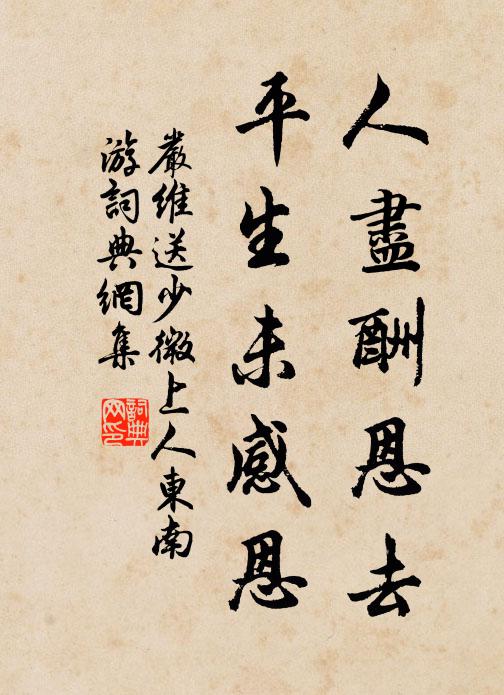 人盡酬恩去
平生未感恩
嚴維送少微上人東南
游詞典網集
詞典
网印